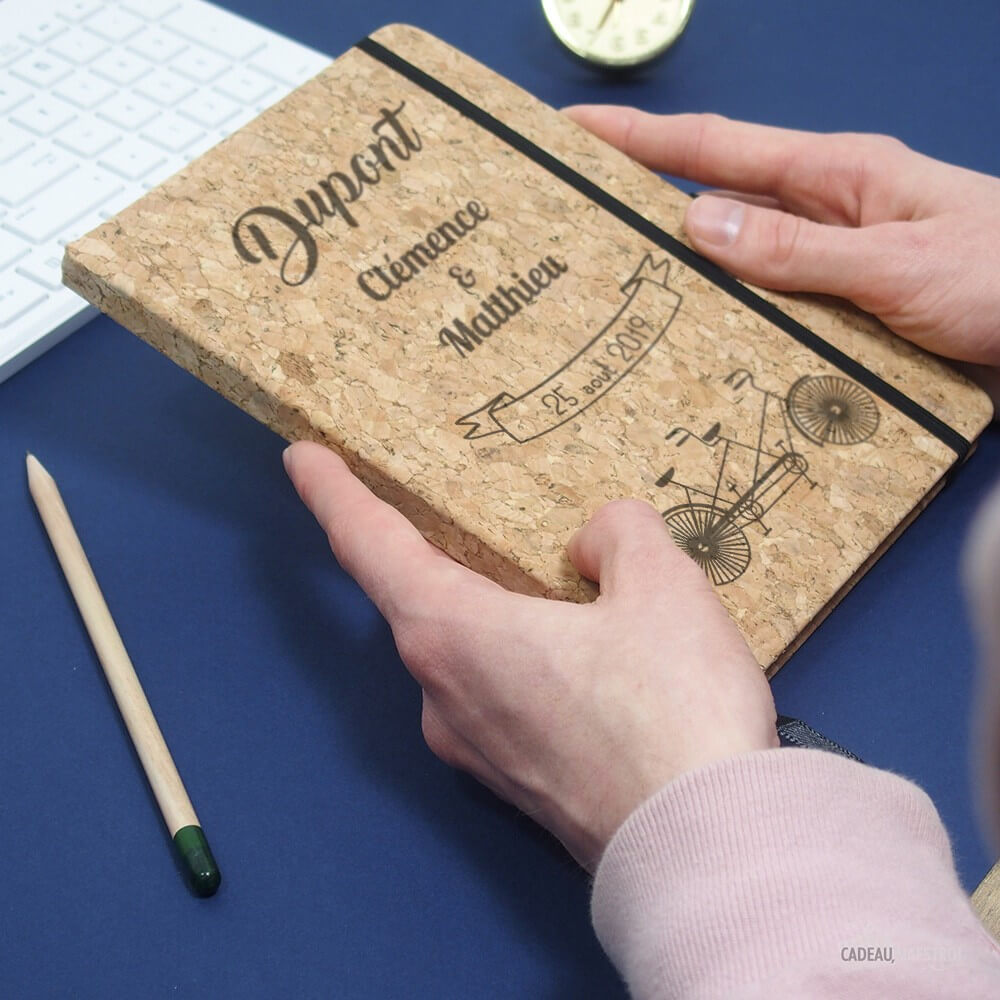 Dupont
Clémence
&
Matthieu
25 août 2019
CADEAU, MAESTRO!